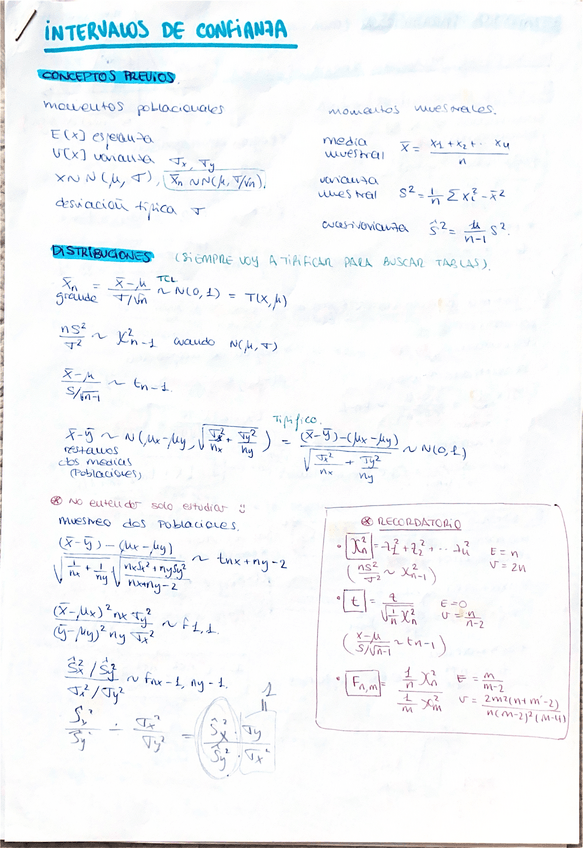 INTERVALOS DE CONFIANZA
CONCEPTOS PREVIOS
momentos poblacionales
E(x) esperanza
V(x) varianza σx, σy
x~N(μ, σ), x̄n ~ N(μ, σ/√n).
desviación típica σ
momentos muestrales.
media muestral x̄ = (x1 + x2 + ·· xn)/n
varianza muestral S² = 1/n Σ xi² - x̄²
cuasivarianza Ŝ² = n/(n-1) S².
DISTRIBUCIONES (SIEMPRE VOY A TIPIFICAR PARA BUSCAR TABLAS).
x̄n grande = (x̄-μ)/(σ/√n) TCL ~ N(0,1) = T(X,μ)
nS²/σ² ~ χ²n-1 cuando N(μ,σ)
(x̄-μ)/(S/√n-1) ~ tn-1.
Tipifico.
x̄-ȳ ~ N(μx-μy, √(σx²/nx + σy²/ny)) = ((x̄-ȳ)-(μx-μy))/√(σx²/nx + σy²/ny) ~ N(0,1)
restamos
dos medias
(Poblaciones)
⊗ No entender solo estudiar
muestreo dos Poblaciones.
((x̄-ȳ)-(μx-μy))/(√(1/nx + 1/ny) √((nxSx²+nySy²)/(nx+ny-2))) ~ tnx+ny-2
((x̄-μx)² nx σy²)/((ȳ-μy)² ny σx²) ~ F1,1.
(Ŝx²/Ŝy²)/(σx²/σy²) ~ fnx-1, ny-1.
1
Ŝx²/Ŝy² : σx²/σy² = Ŝx²/Ŝy² · σy/σx²
⊗ RECORDATORIO
· χ²n = z1² + z2² + ··· zn² E = n
V = 2n
(nS²/σ² ~ χ²n-1)
· t = z/√(1/n χ²n) E = 0
V = n/(n-2)
((x-μ)/(S/√n-1) ~ tn-1)
· Fn,m = (1/n χ²n)/(1/m χ²m) E = m/(m-2)
V = 2m²(n+m-2)/(n(m-2)²(m-4))